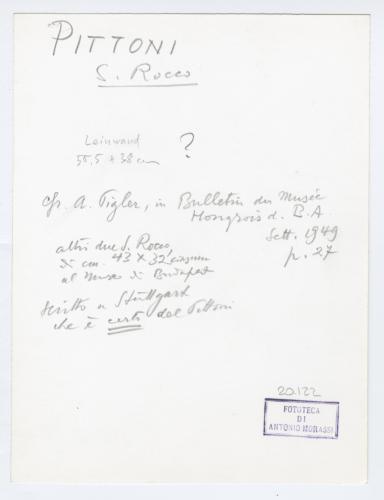 PITTONI
S. Rocco
Leinwand
55,5 x 38 cm
?
cfr. A. Pigler, in Bulletin du Musée
Hongrois d. B.A.
Sett. 1949
p. 27
altri due S. Rocco,
di cm. 43 x 32 ciascuno
al Museo di Budapest
scritto a Stuttgart
che è certo del Pittoni
20.122
FOTOTECA
DI
ANTONIO MORASSI